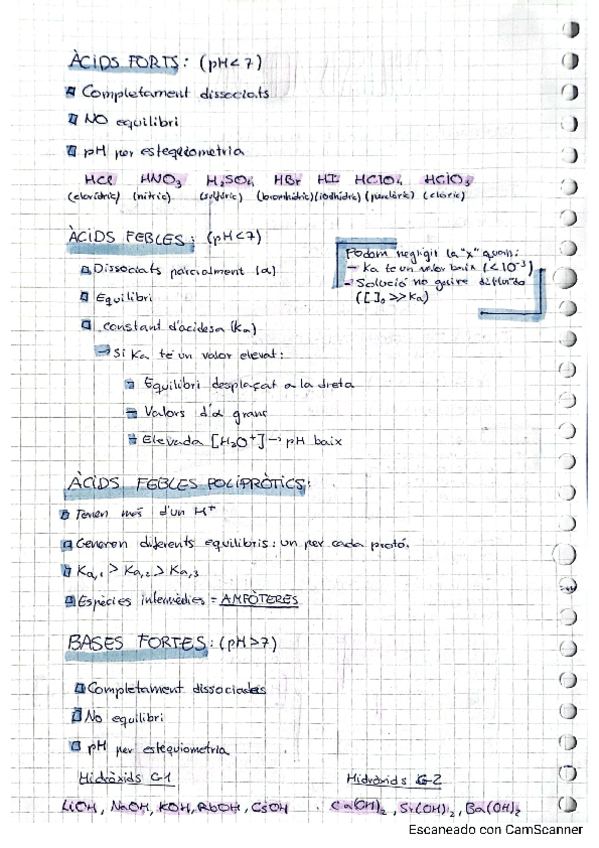 ÀCIDS FORTS: (pH<7)
Completament dissociats
NO equilibri
pH per estequiometria
HCl HNO₃ H₂SO₄ HBr HI HClO₄ HClO₃
(clorídric) (nítric) (sulfúric) (bromhídric) (iodhídric) (perclòric) (clòric)
ÀCIDS FEBLES: (pH<7)
Podem negligir la "x" quan:
- Ka té un valor baix (<10⁻³)
- Solució no gaire diluïda
([ ]₀ >> Ka)
Dissociats parcialment (α)
Equilibri
constant d'acidesa (Ka)
→ Si Ka té un valor elevat:
Equilibri desplaçat a la dreta
Valors d'α grans
Elevada [H₃O⁺] → pH baix
ÀCIDS FEBLES POLIPRÒTICS:
Tenen més d'un H⁺
Generen diferents equilibris: un per cada protó.
Ka,1 > Ka,2 > Ka,3
Espècies intermèdies = AMFÒTERES
BASES FORTES: (pH>7)
Completament dissociades
No equilibri
pH per estequiometria
Hidròxids G-1 Hidròxids G-2
LiOH, NaOH, KOH, RbOH, CsOH . Ca(OH)₂, Sr(OH)₂, Ba(OH)₂
Escaneado con CamScanner